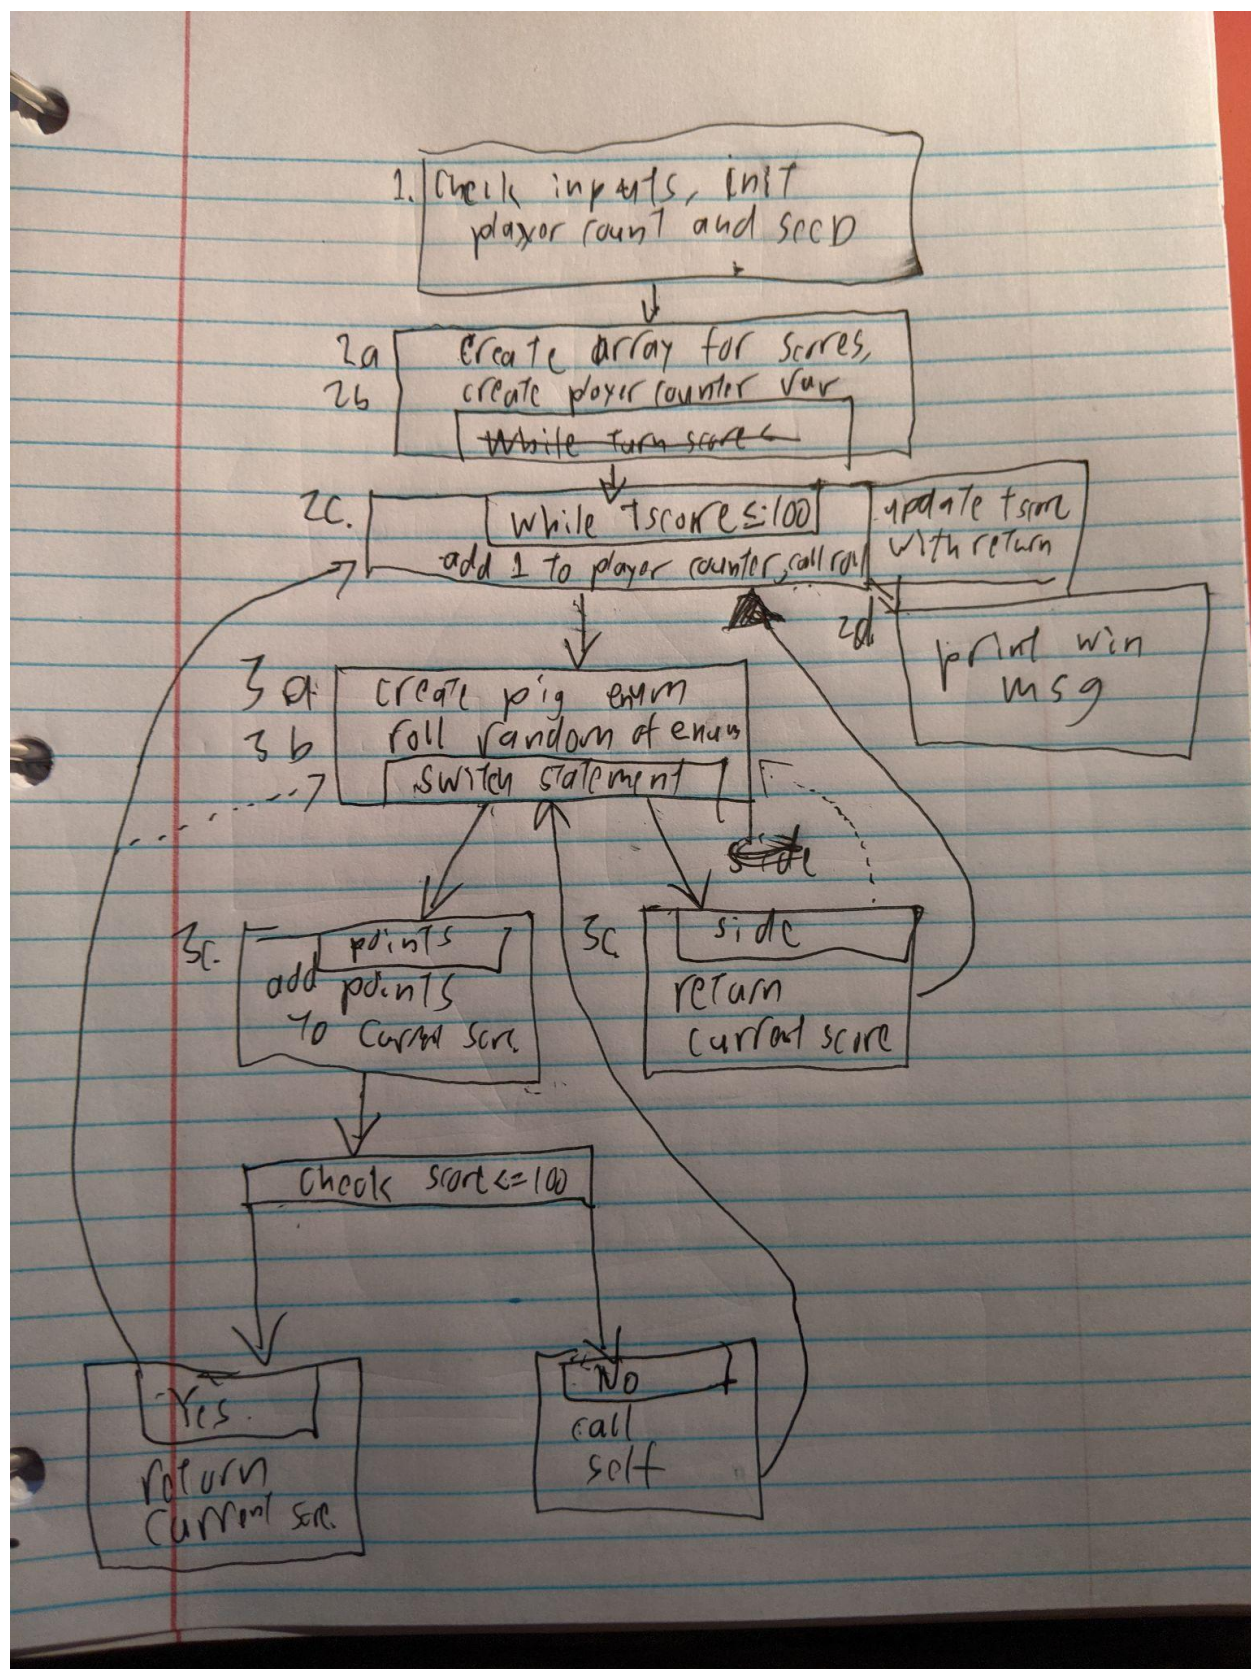 1. Check inputs, init
player count and seed
2a Create array for scores,
2b create player counter var
While turn score <
2c. while tscore ≤ 100
add 1 to player counter, call roll
update tscore
with return
2d.
print win
msg
3a. create pig enum
3b roll random of enum
switch statement
side
3c. points
add points
to current score
3c. side
return
current score
check score <= 100
Yes
return
current score
No
call
self